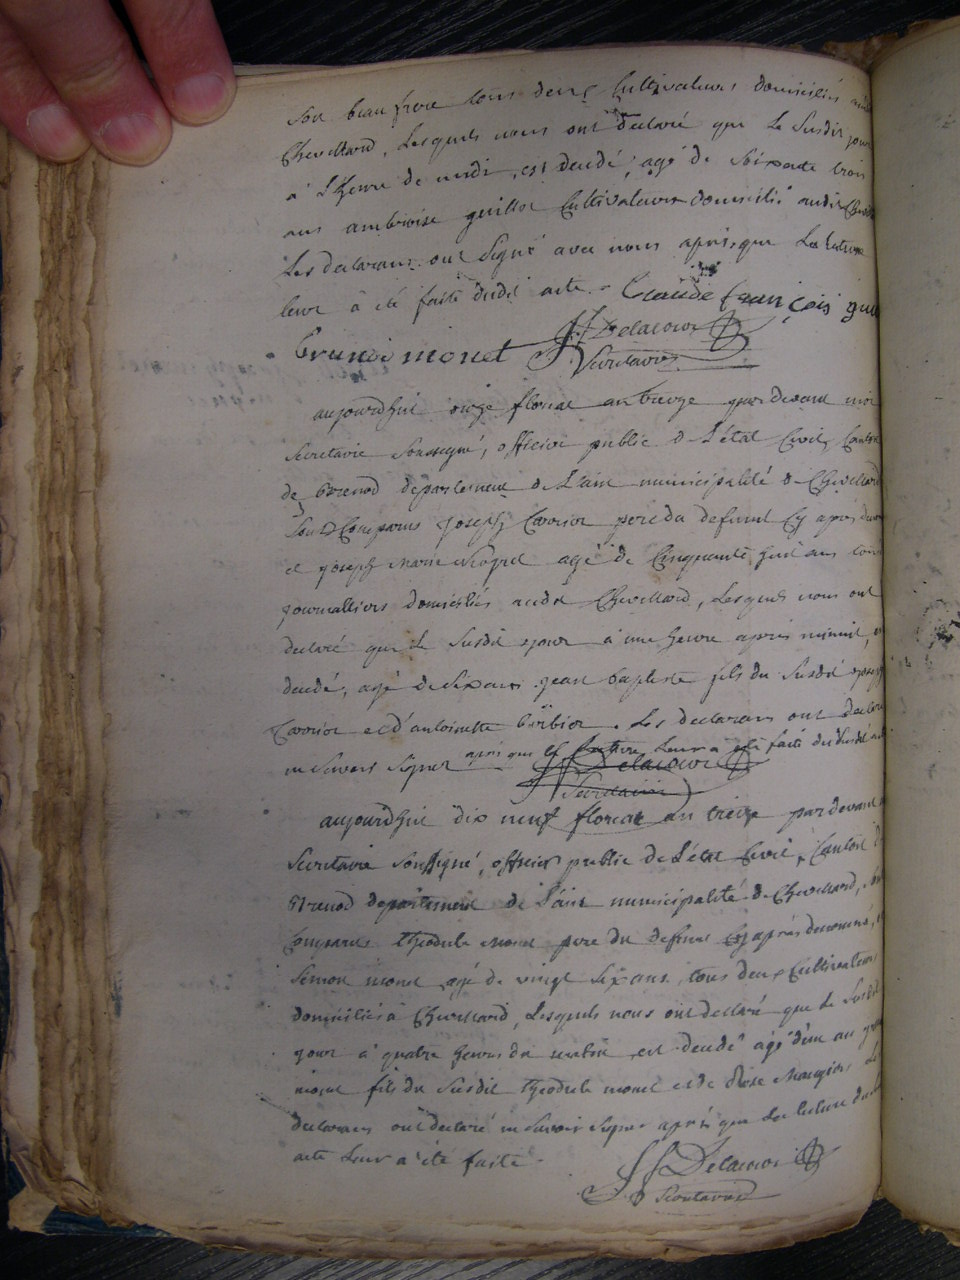 son beau frere tous deux Cultivateurs domiciliés
Chevillard, Lesquels nous ont declaré que Le Susdit jour
à L'heure de midi, est decédé, agé de Soixante trois
ans ambroise guillot Cultivateur domicilié audit
Les declarans ont Signé avec nous après que La lecture
leur à été faite dudit acte. Claude françois
monet Delacour
Secretaire
aujourdhui onze floreal an treize pardevant moi
Secretaire Soussigné, officier public de L'état Civil, Canton
de brenod departement de L'ain municipalité de Chevillard
Sont Comparus joseph Carrier pere du defunt Cy après
et joseph Marie agé de Cinquante huit ans tous
journalliers domiciliés audit Chevillard, Lesquels nous ont
declaré que Le Susdit jour à une heure après minuit,
decédé, agé de Six ans jean baptiste fils du Susdit joseph
Carrier et d'antoinette Barbier. Les declarans ont declaré
ne Savoir Signer après que La Lecture Leur a été faite du Susdit acte
Delacour
Secretaire
aujourdhui dix neuf floreal an treize pardevant
Secretaire Soussigné, officier public de L'état Civil, Canton de
Brenod departement de L'ain municipalité de Chevillard,
Comparus theodule Monet pere du defunt Cy après denommé,
Simon monet agé de vingt Six ans, tous deux Cultivateurs
domiciliés à Chevillard, Lesquels nous ont declaré que Le Susdit
jour à quatre heures du matin est decédé agé d'un an
monet fils du Susdit theodule monet et de Rose
declarans ont declaré ne Savoir Signer après que La lecture du
acte Leur a été faite.
Delacour
Secretaire